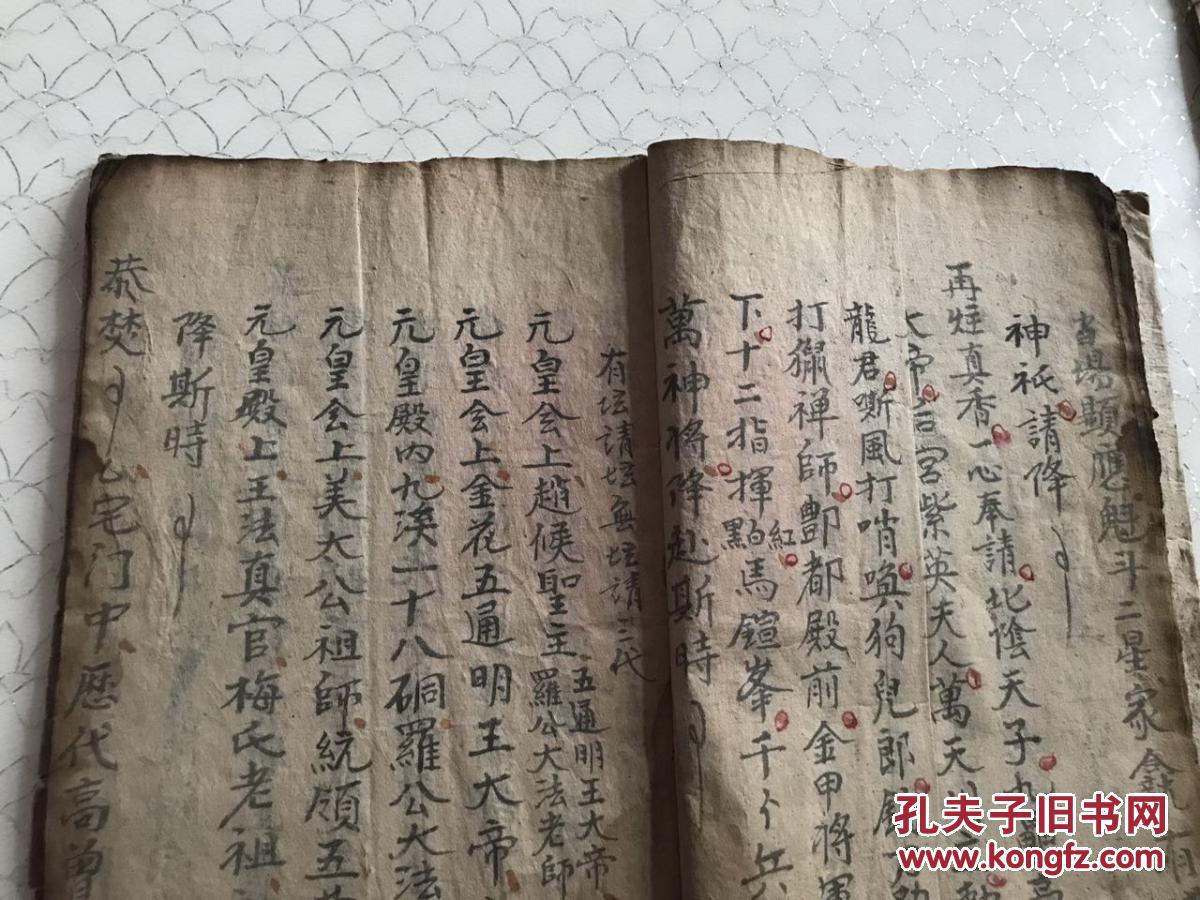 當場顯應魁斗二星家
神祇請降
再炷真香一心奉請北陰天子九
大帝后宮紫英夫人萬天
龍君嘶風打哨喚狗兒郎殿
打獵禅師酆都殿前金甲將軍
下十二指揮點紅馬鎧峯千个兵
萬神將降赴斯時
有坛請坛無坛請三代
元皇会上趙候聖主五通明王大帝羅公大法老師
元皇会上金花五通明王大帝
元皇殿内九溪一十八硐羅公大法
元皇会上美大公祖師統領五
元皇殿上王法真官梅氏老祖
降斯時
恭焚
宅门中歷代高曽
孔夫子旧书网
www.kongfz.com